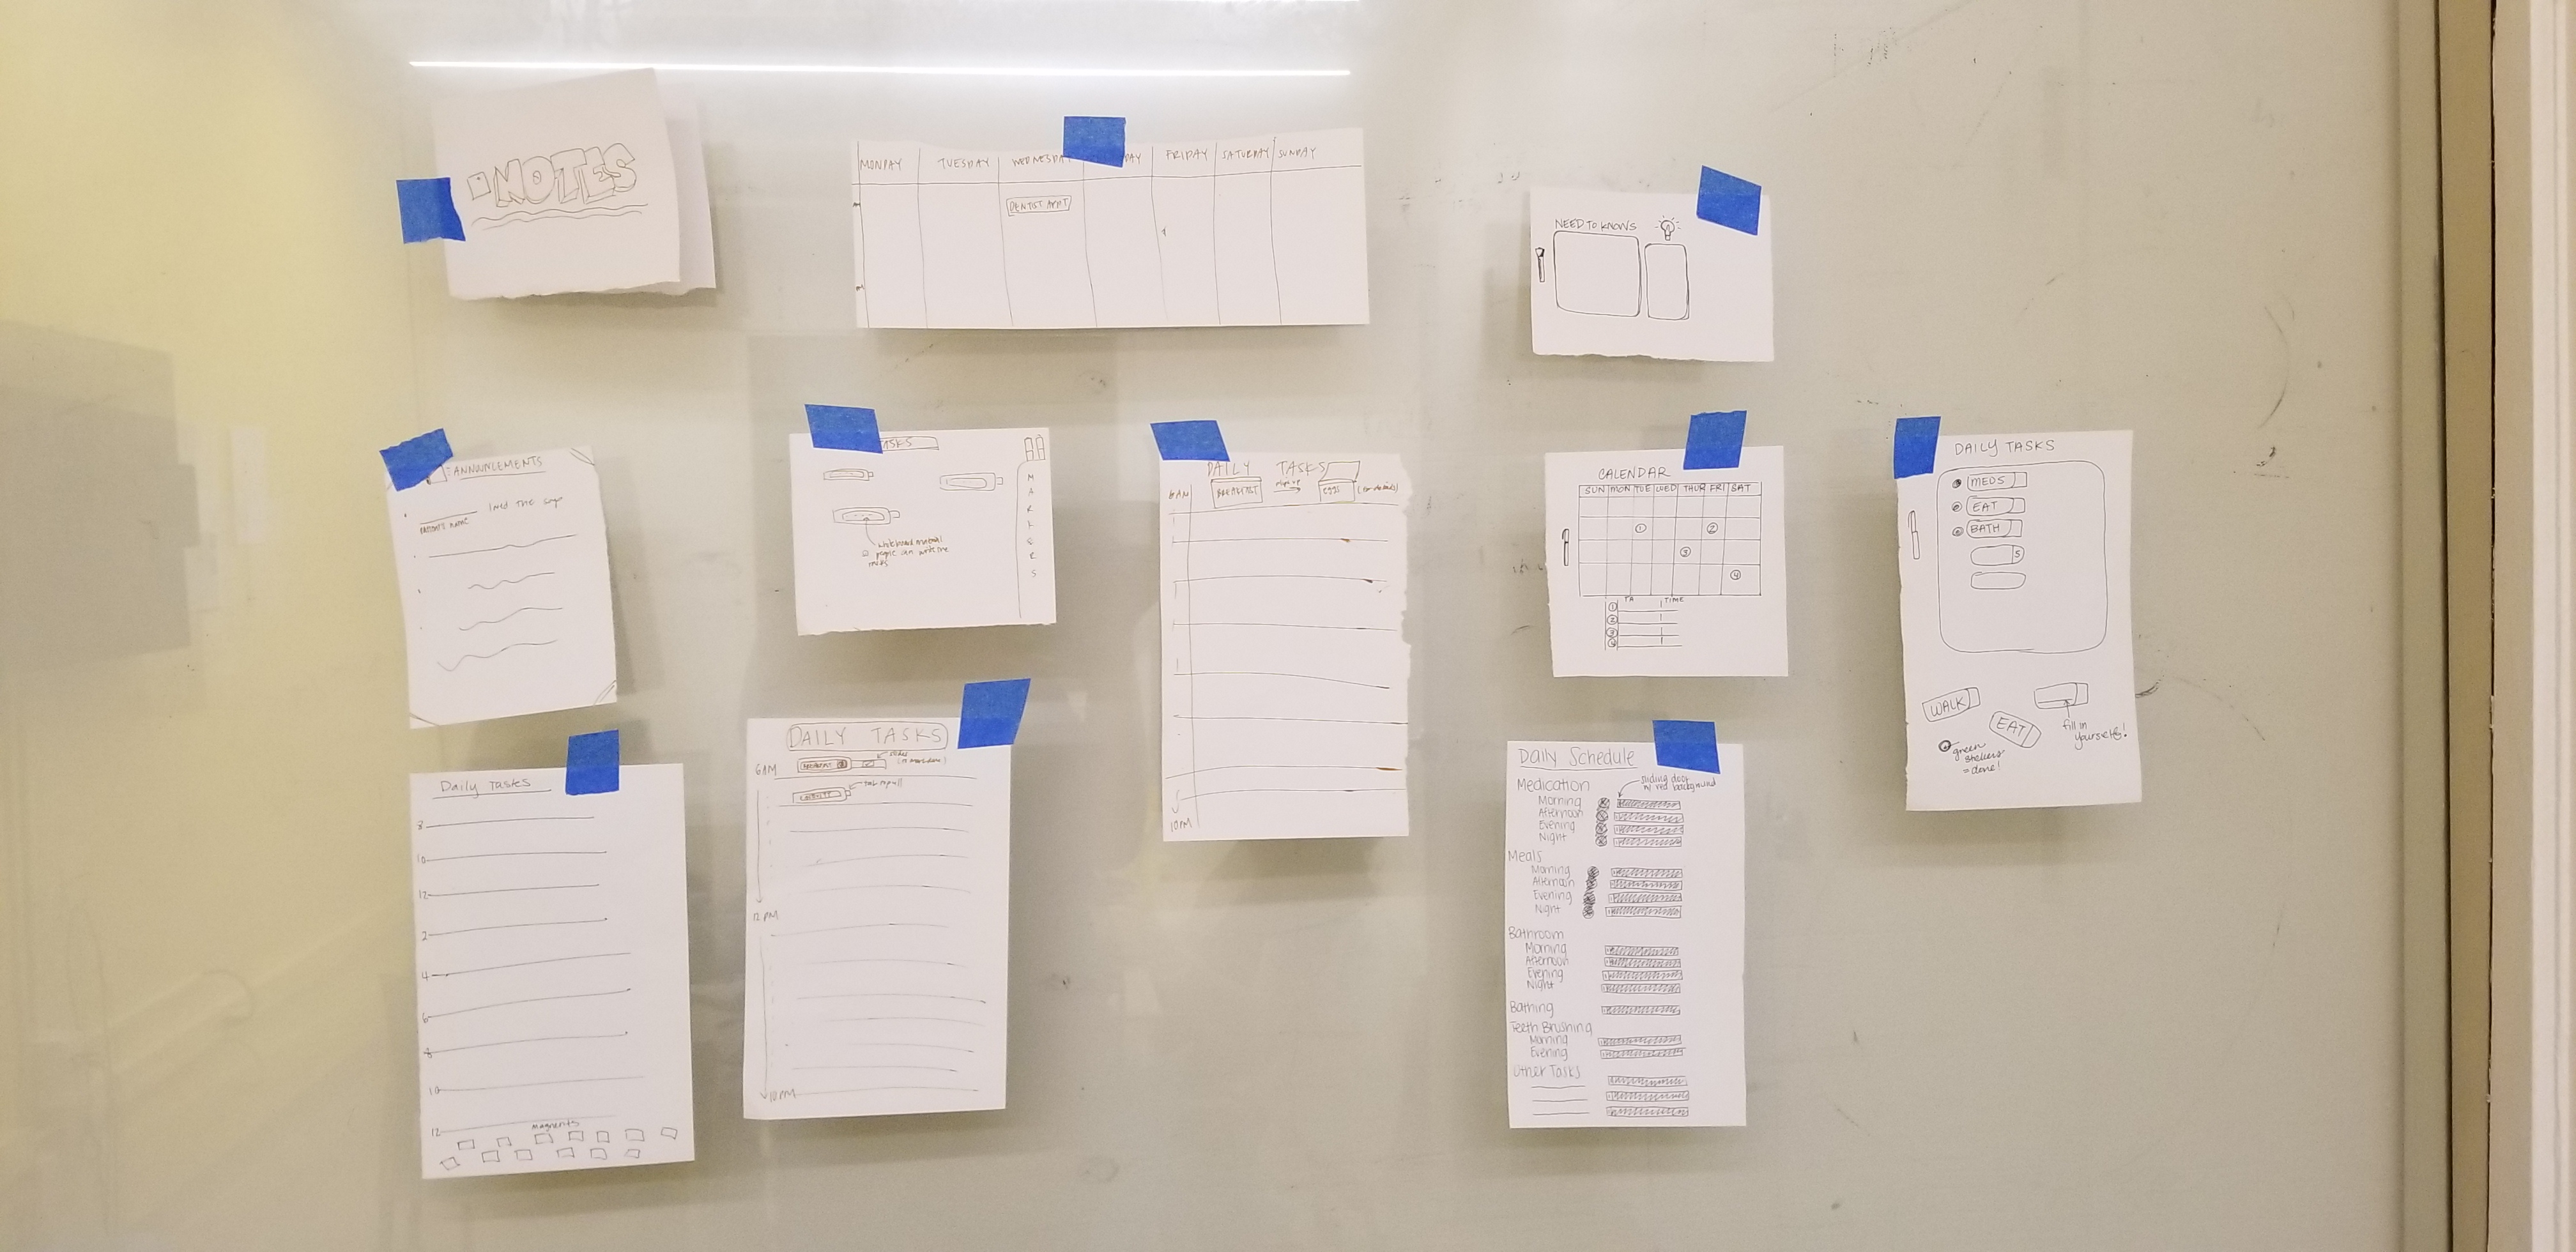 NOTES
MONDAY TUESDAY WEDNESDA DAY FRIDAY SATURDAY SUNDAY
DENTIST APPT
NEED TO KNOWS
ANNOUNCEMENTS
PATIENT'S NAME
TASKS
MARKERS
whiteboard material
people can write the
meds
DAILY TASKS
6AM BREAKFAST flip up eggs
10PM
CALENDAR
SUN MON TUE WED THUR FRI SAT
1 2
3
4
TIME
1
2
3
4
DAILY TASKS
MEDS
EAT
BATH
S
WALK
EAT
fill in
yourself!
green
stickers
= done!
Daily Tasks
8
10
12
2
4
6
8
10
12
magnets
DAILY TASKS
6AM BREAKFAST
12 PM
10PM
Daily Schedule
Medication
sliding door
w/ red background
Morning
Afternoon
Evening
Night
Meals
Morning
Afternoon
Evening
Night
Bathroom
Morning
Afternoon
Evening
Night
Bathing
Teeth Brushing
Morning
Evening
Other Tasks